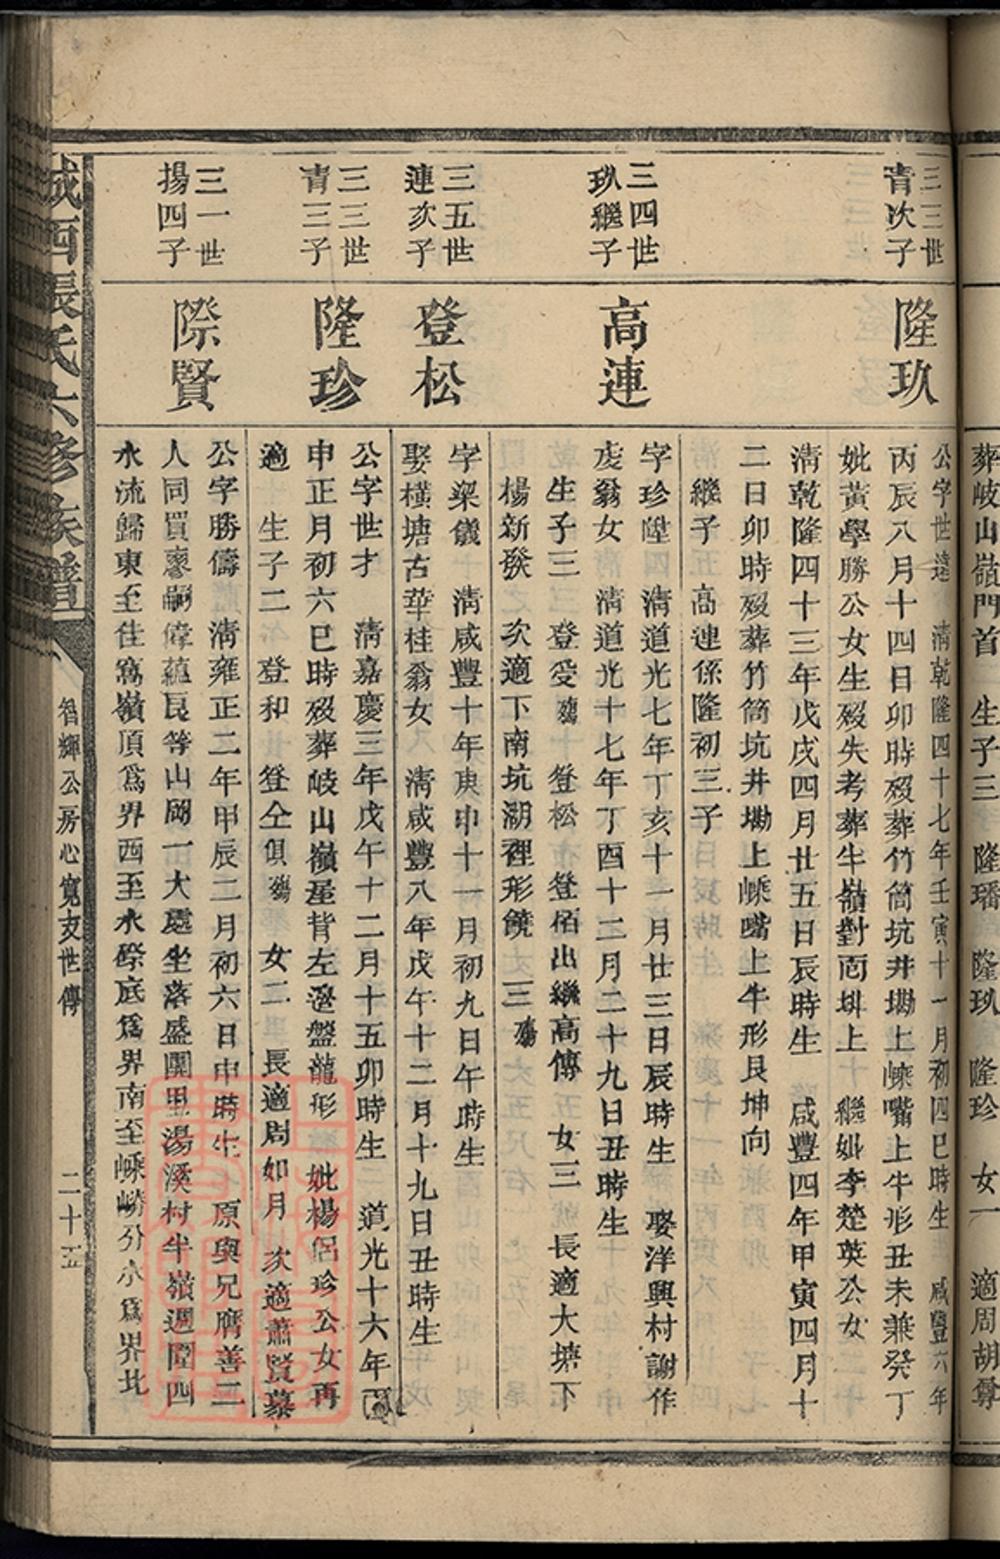 葬岐山嶺門首　生子三　隆璠　隆玖　隆珍　女一　適周胡尊
三三世
青次子
隆玖
公字世達　清乾隆四十七年壬寅十一月初四巳時生　咸豐六年
丙辰八月十四日卯時歿葬竹筒坑井塝上嵊嘴上牛形丑未兼癸丁
妣黃學勝公女生歿失考葬牛嶺對面圳上　繼妣李楚英公女
清乾隆四十三年戊戌四月廿五日辰時生　咸豐四年甲寅四月十
二日卯時歿葬竹筒坑井塝上嵊嘴上牛形艮坤向
繼子　高連係隆初三子
三四世
玖繼子
高連
字珍陞　清道光七年丁亥十一月廿三日辰時生　娶洋興村謝作
虔翁女　清道光十七年丁酉十二月二十九日丑時生
生子三　登受殤　登松　登佰出繼高傳　女三　長適大塘下
楊新發　次適下南坑湖裡形饒　三殤
三五世
連次子
登松
字樑儀　清咸豐十年庚申十一月初九日午時生
娶橫塘古華桂翁女　清咸豐八年戊午十二月十九日丑時生
三三世
青三子
隆珍
公字世才　清嘉慶三年戊午十二月十五卯時生　道光十六年丙
申正月初六巳時歿葬岐山嶺屋背左邊盤龍形　妣楊侶珍公女再
適　生子二　登和　登仝俱殤　女二　長適周如月　次適蕭賢慕
三一世
揚四子
際賢
公字勝儔　清雍正二年甲辰二月初六日申時生　原與兄膺善二
人同買廖嗣偉蘊艮等山岡一大處坐落盛圍里湯溪村半嶺週圍四
水流歸東至佳窩嶺頂為界西至水磜底為界南至嵊嶗分水為界北
城西張氏六修族譜
智輝公房心寬支世傳
二十五